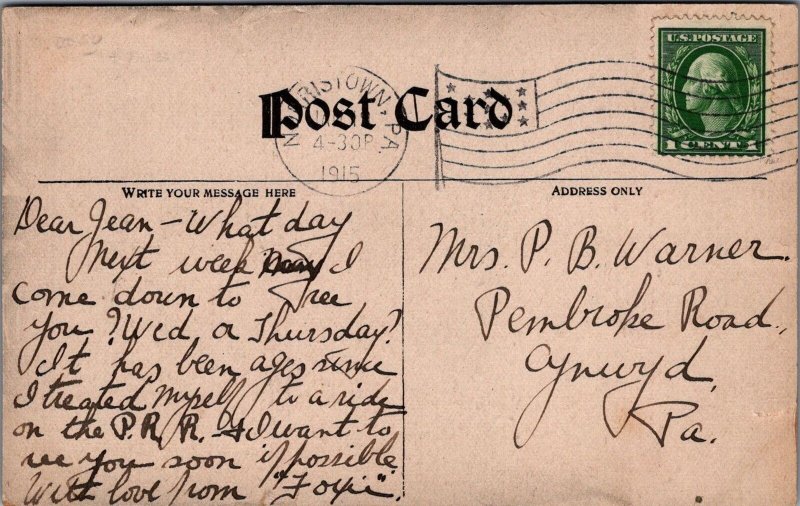 U.S. POSTAGE
1 CENT 1
NORRISTOWN, PA.
4-30P
1915
Post Card
WRITE YOUR MESSAGE HERE
ADDRESS ONLY
Dear Jean - What day
next week may I
come down to see
you? Wed or Thursday?
It has been ages since
I treated myself to a ride
on the P.R.R. & I want to
see you soon if possible
With love from "Foxie".
Mrs. P. B. Warner.
Pembroke Road,
Cynwyd,
Pa.